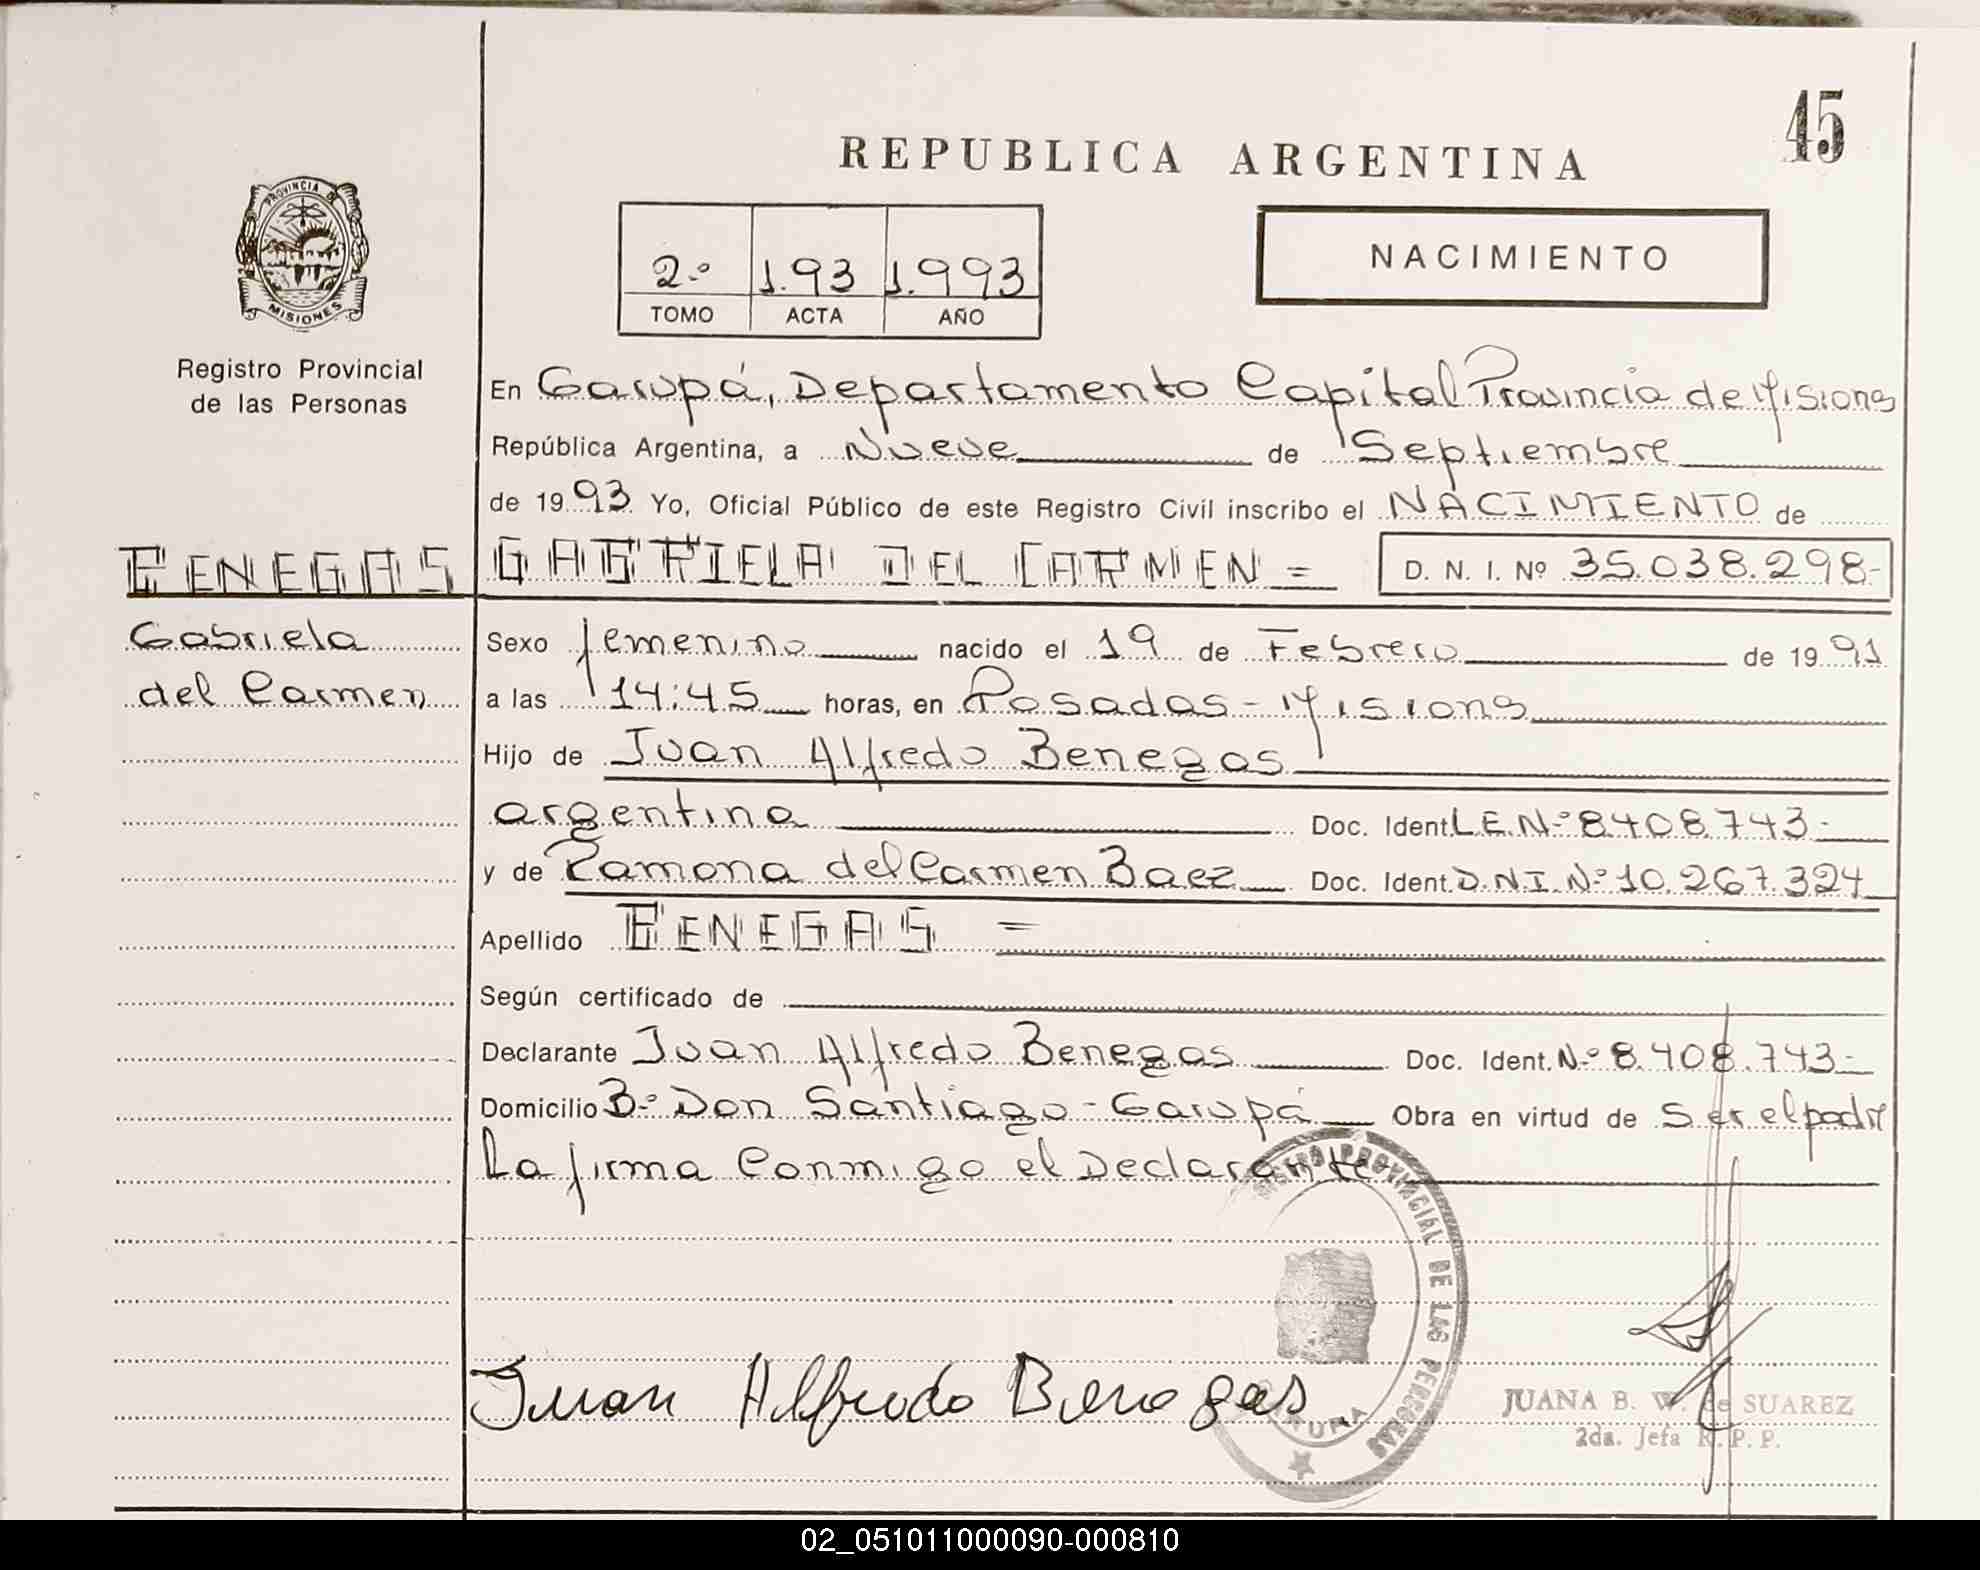 45
REPUBLICA ARGENTINA
PROVINCIA DE
MISIONES
Registro Provincial
de las Personas
2.º 1.93 1.993
TOMO ACTA AÑO
NACIMIENTO
En Garupá, Departamento Capital Provincia de Misiones
República Argentina, a Nueve de Septiembre
de 1993 Yo, Oficial Público de este Registro Civil inscribo el NACIMIENTO de
BENEGAS GABRIELA DEL CARMEN = D. N. I. Nº 35.038.298-
Gabriela
del Carmen
Sexo femenino nacido el 19 de Febrero de 1991
a las 14:45 horas, en Posadas - Misiones
Hijo de Juan Alfredo Benegas
argentina Doc. Ident. L.E.N.º 8.408.743-
y de Ramona del Carmen Baez Doc. Ident. D.N.I. N.º 10.267.324
Apellido BENEGAS =
Según certificado de
Declarante Juan Alfredo Benegas Doc. Ident. N.º 8.408.743-
Domicilio B.º Don Santiago - Garupá Obra en virtud de Ser el padre
La firma Conmigo el Declarante
PROVINCIAL DE LAS PERSONAS
Juan Alfredo Benegas
JUANA B. W. de SUAREZ
2da. Jefa R.P.P.
02_051011000090-000810